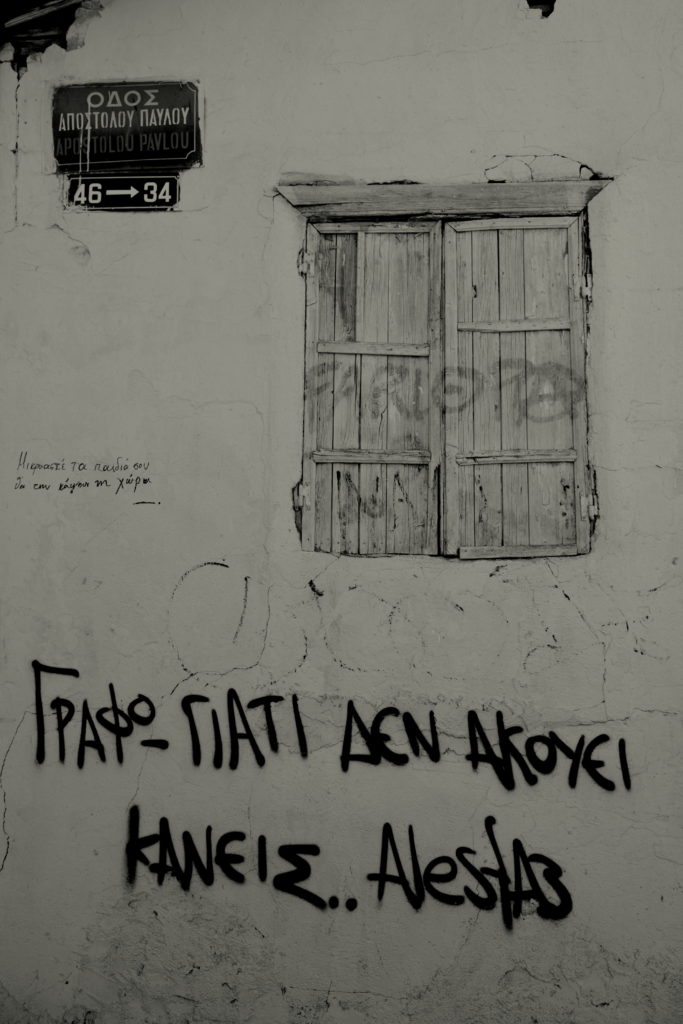 ΟΔΟΣ
ΑΠΟΣΤΟΛΟΥ ΠΑΥΛΟΥ
APOSTOLOU PAVLOU
46→34
τα παιδιά σου
θα την κάψουν τη χώρα
ΓΡΑΦΩ ΓΙΑΤΙ ΔΕΝ ΑΚΟΥΕΙ
ΚΑΝΕΙΣ..